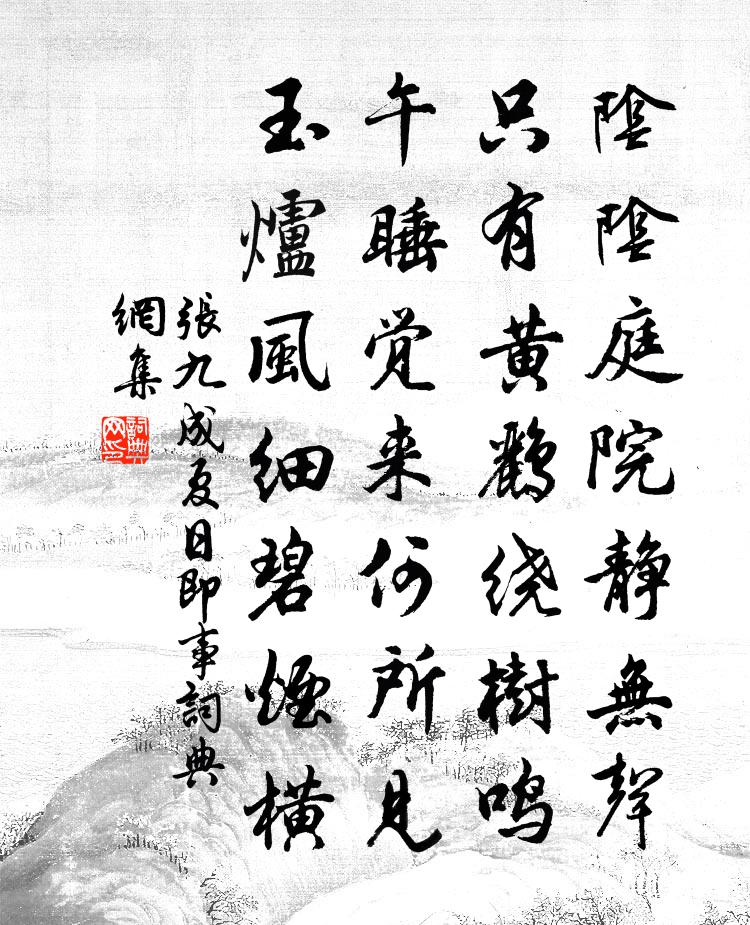 陰陰庭院静無聲
只有黄鸝绕樹鳴
午睡覚来何所見
玉爐風細碧煙橫
張九成夏日即事詞典
網集
詞典